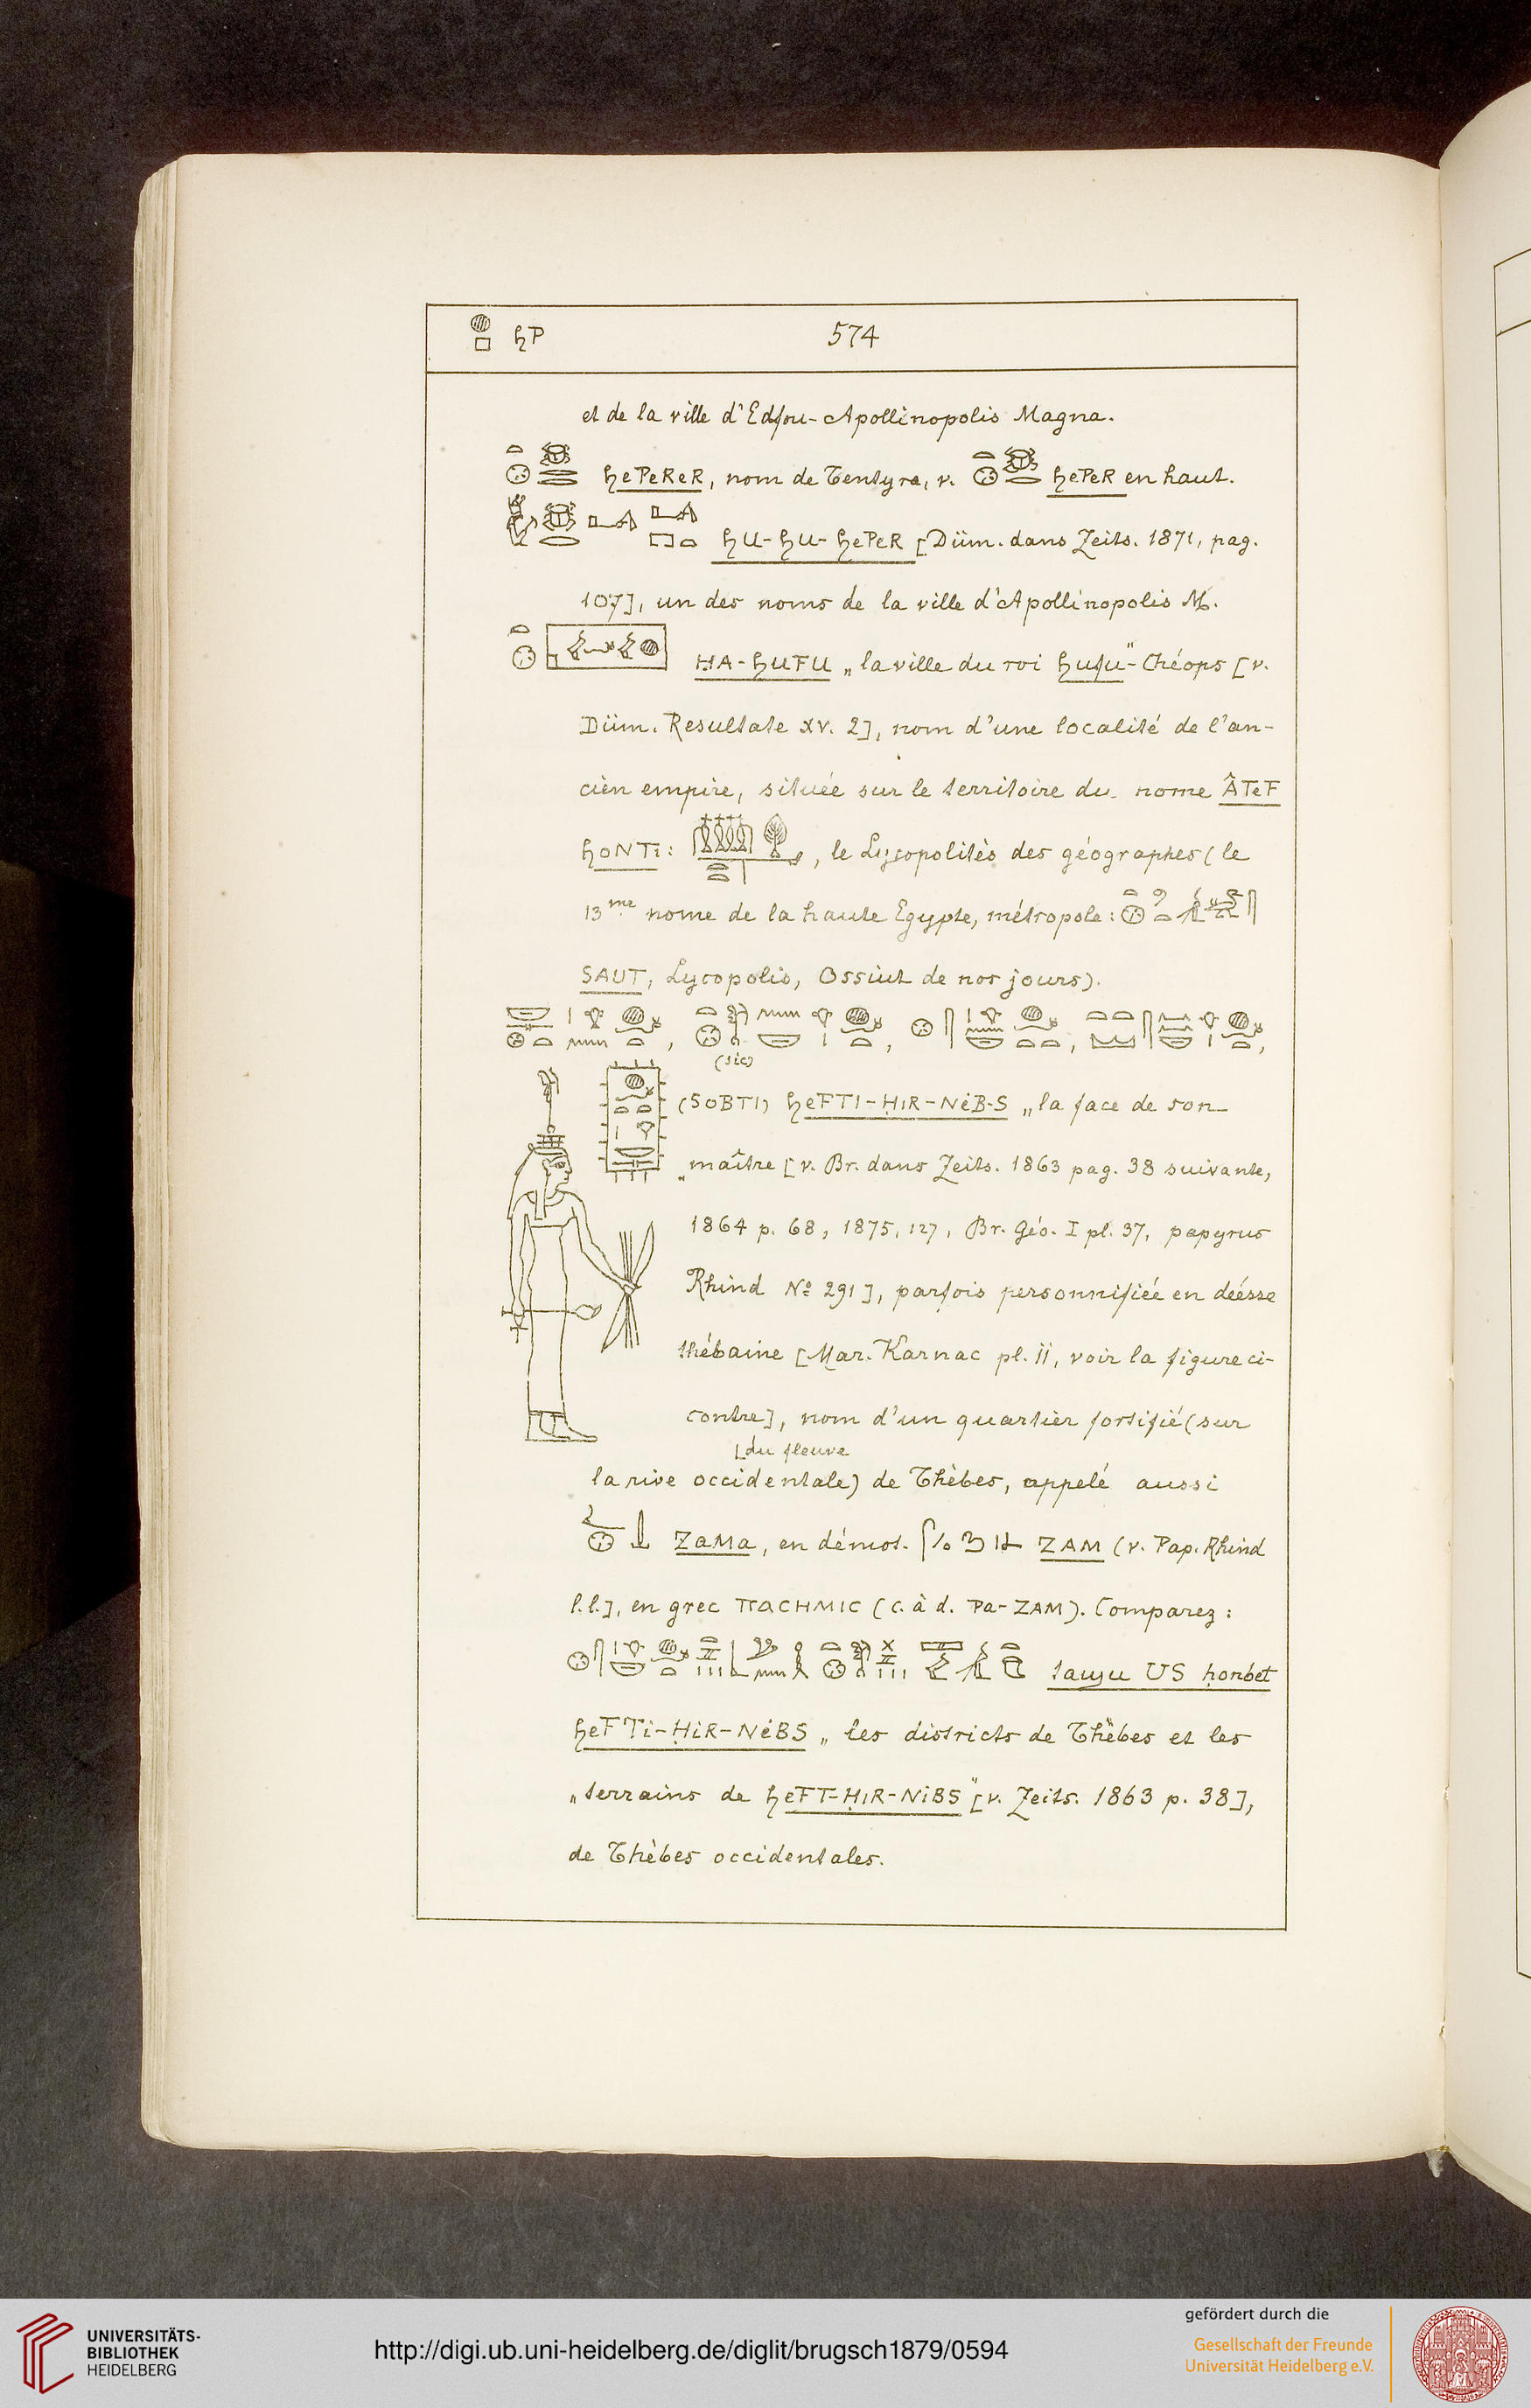 hP 574
et de la ville d'Edfou-Apollinopolis Magna.
hePeReR, nom de Tentyra, v. hePeR en haut.
hU-hU-hePeR [Düm. dans Zeits. 1871, pag.
107], un des noms de la ville d'Apollinopolis M.
HA-hUFU „la ville du roi hufu"-Chéops [v.
Düm. Resultate XV. 2], nom d'une localité de l'an-
cien empire, située sur le territoire du nome ÂTeF
hoNTi: , le Lycopolitès des géographes (le
13me nome de la haute Egypte, métropole:
SAUT, Lycopolis, Ossiut de nos jours).
(sic)
(SOBTI) heFTI-ḤIR-NéB-S „la face de son
„maître [v. Br. dans Zeits. 1863 pag. 38 suivante,
1864 p. 68, 1875, 127, Br. Géo. I pl. 37, papyrus
Rhind No 291], parfois personnifiée en déesse
thébaine [Mar. Karnac pl. II, voir la figure ci-
contre], nom d'un quartier fortifié (sur
[du fleuve
la rive occidentale) de Thèbes, appelé aussi
ZaMa, en démot. ZAM (v. Pap. Rhind
l.l.], en grec ΠαCHMIC (c. à d. Pa-ZAM). Comparez:
US ḥonbet
heFTi-ḤiR-NéBS „les districts de Thèbes et les
„terrains de heFT-ḤIR-NiBS" [v. Zeits. 1863 p. 38],
de Thèbes occidentales.
UNIVERSITÄTS-
BIBLIOTHEK
HEIDELBERG
http://digi.ub.uni-heidelberg.de/diglit/brugsch1879/0594
gefördert durch die
Gesellschaft der Freunde
Universität Heidelberg e.V.